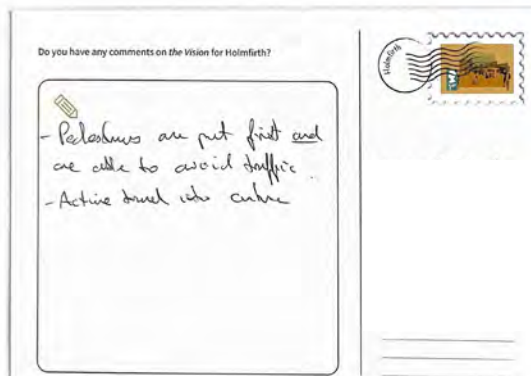 Do you have any comments on the Vision for Holmfirth?
Holmfirth
- Pedestrians are put first and
are able to avoid traffic.
- Active travel into centre